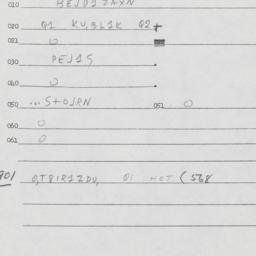 010 BEJU1ZAXN
020 Q1 KU,3L1K Q2
021 O
030 PEJ1S
040 O
050 ...S+OJRN 051 O
060 O
061 O
901 O,T8IR1ZDU, Q1 HOT (568